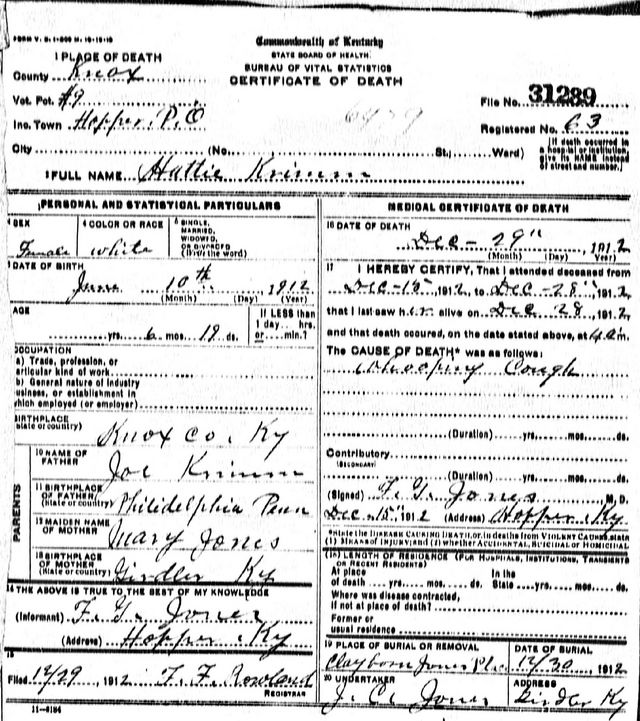 FORM V. S. 1-
Commonwealth of Kentucky
STATE BOARD OF HEALTH
BUREAU OF VITAL STATISTICS
CERTIFICATE OF DEATH
1 PLACE OF DEATH
County Knox
Vot. Pct. #9
Inc. Town Hopper P.O
City (No. St.; Ward)
File No. 31289
Registered No. 63
[If death occurred in a hospital or institution, give its NAME instead of street and number.]
1 FULL NAME Hattie Krimm
PERSONAL AND STATISTICAL PARTICULARS
SEX Female
4 COLOR OR RACE white
5 SINGLE, MARRIED, WIDOWED, OR DIVORCED (Write the word)
DATE OF BIRTH June 10th 1912
(Month) (Day) (Year)
AGE yrs. 6 mos. 19 ds.
If LESS than 1 day hrs. or min.?
OCCUPATION
a) Trade, profession, or articular kind of work
b) General nature of industry
usiness, or establishment in
which employed (or employer)
BIRTHPLACE
(State or country) Knox co. Ky
PARENTS
10 NAME OF FATHER Joe Krimm
11 BIRTHPLACE OF FATHER (State or country) Philidelphia Penn
12 MAIDEN NAME OF MOTHER Mary Jones
13 BIRTHPLACE OF MOTHER (State or country) Girdler Ky
14 THE ABOVE IS TRUE TO THE BEST OF MY KNOWLEDGE
(Informant) F. G. Jones
(Address) Hopper Ky
15
Filed 12/29, 1912 T. F. Rowland
REGISTRAR
11-6184
MEDICAL CERTIFICATE OF DEATH
16 DATE OF DEATH
Dec - 29", 1912
(Month) (Day) (Year)
17 I HEREBY CERTIFY, That I attended deceased from
Dec-15", 1912, to Dec-28", 1912,
that I last saw her alive on Dec 28, 1912,
and that death occured, on the date stated above, at 4 a.m.
The CAUSE OF DEATH* was as follows:
Whooping Cough
(Duration) yrs. mos. ds.
Contributory
(SECONDARY)
(Duration) yrs. mos. ds.
(Signed) F. G. Jones M. D.
Dec-15", 1912 (Address) Hopper Ky
*State the DISEASE CAUSING DEATH, or, in deaths from VIOLENT CAUSES, state
(1) MEANS OF INJURY; and (2) whether ACCIDENTAL, SUICIDAL or HOMICIDAL
(18) LENGTH OF RESIDENCE (FOR HOSPITALS, INSTITUTIONS, TRANSIENTS OR RECENT RESIDENTS)
At place of death yrs. mos. ds. In the State yrs. mos. ds.
Where was disease contracted,
if not at place of death?
Former or
usual residence
19 PLACE OF BURIAL OR REMOVAL
Clayborn Jones Place
DATE OF BURIAL
12/30, 1912
20 UNDERTAKER
J. C. Jones
ADDRESS
Girdler Ky